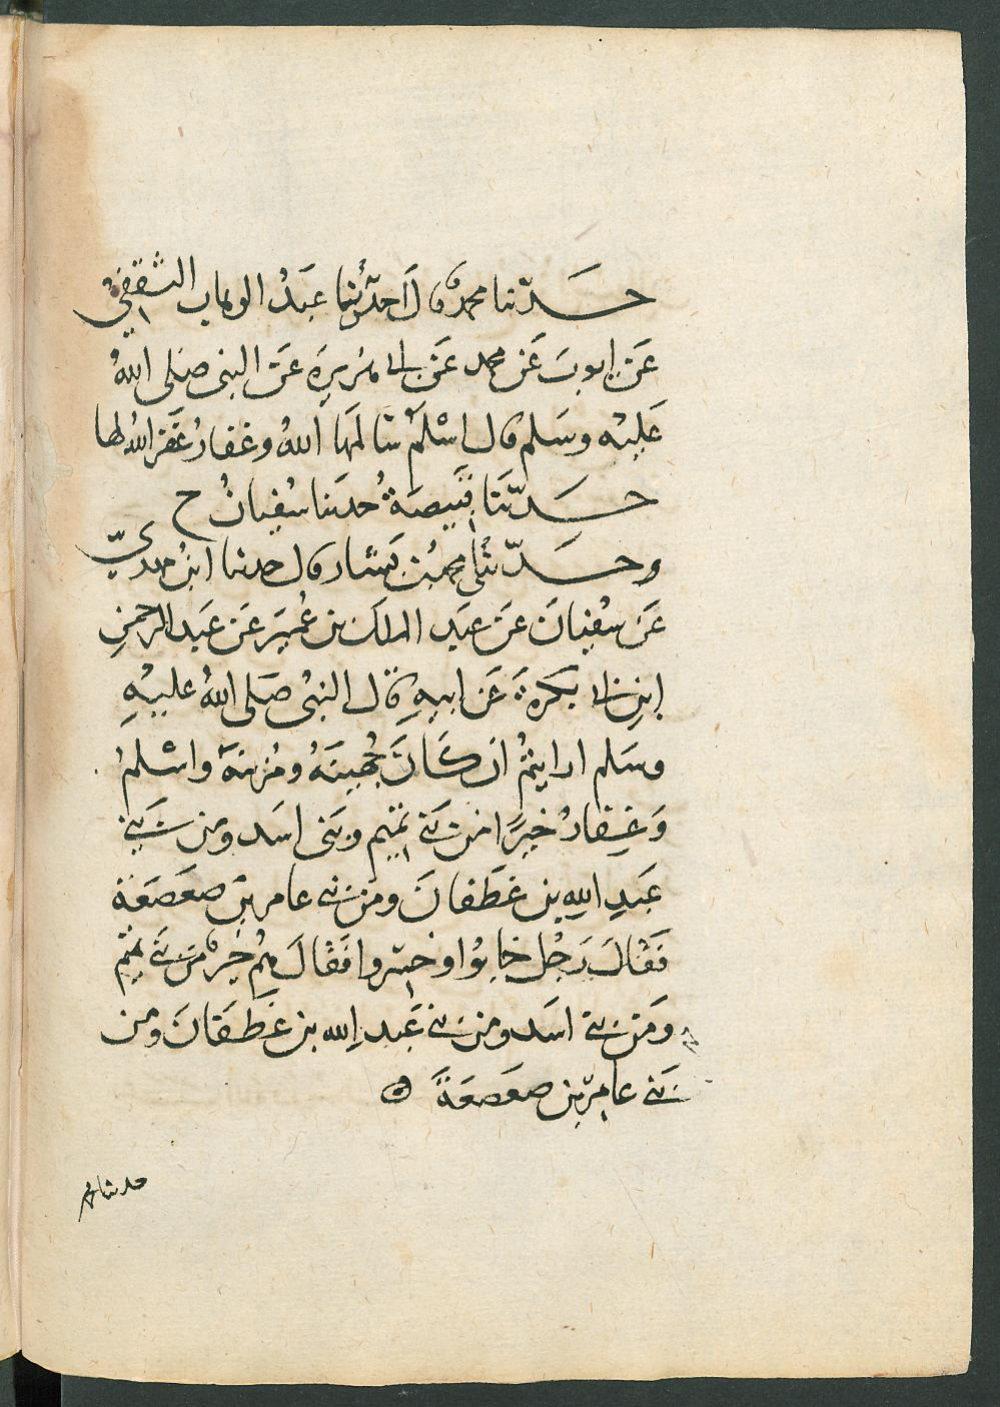 حَدّثنا محمدٌ قال اَخبرنا عبدُ الوهاب الثقفيُّ
عَن ايوبَ عَن محمد عَن ابى هُرَيرَة عَن النبى صَلى اللهُ
عَليْه وسَلم قال اسْلَمُ سَالمَهَا اَللهُ وغفارُ غَفَر اللهُ لها
حَدّثَنَا قَبِيصَةُ حدثنا سُفيانُ ح
وحَدّثنى محمدبن بَشار قال حدثنا ابنُ مهدىّ
عَن سفيَان عَن عَبد الملك بن عُمَيَر عَن عَبد الرحمنِ
ابنِ ابى بَكَرةَ عَن ابيهِ قال النبىُ صَلى اللهُ عليهِ
وسَلم ارايتمُ ان كَانَ جُهَينَةُ ومُزينةُ واسْلمُ
وَغِفارُ خيرًا من بَنى تميم وبَنى اسَد ومن بَنى
عَبدِ اللهِ بن غطَفانَ ومن بَنى عامر بن صعصَعَة
فَقالَ رَجُل خابُوا وخسِروا فقالَ هُم خيرٌ من بَنى تميم
ومَن بَنى اسَد ومن بَنى عَبد الله بن غَطَفانَ ومن
بَنى عامِر بن صعصَعَةَ
حدثنا محمد